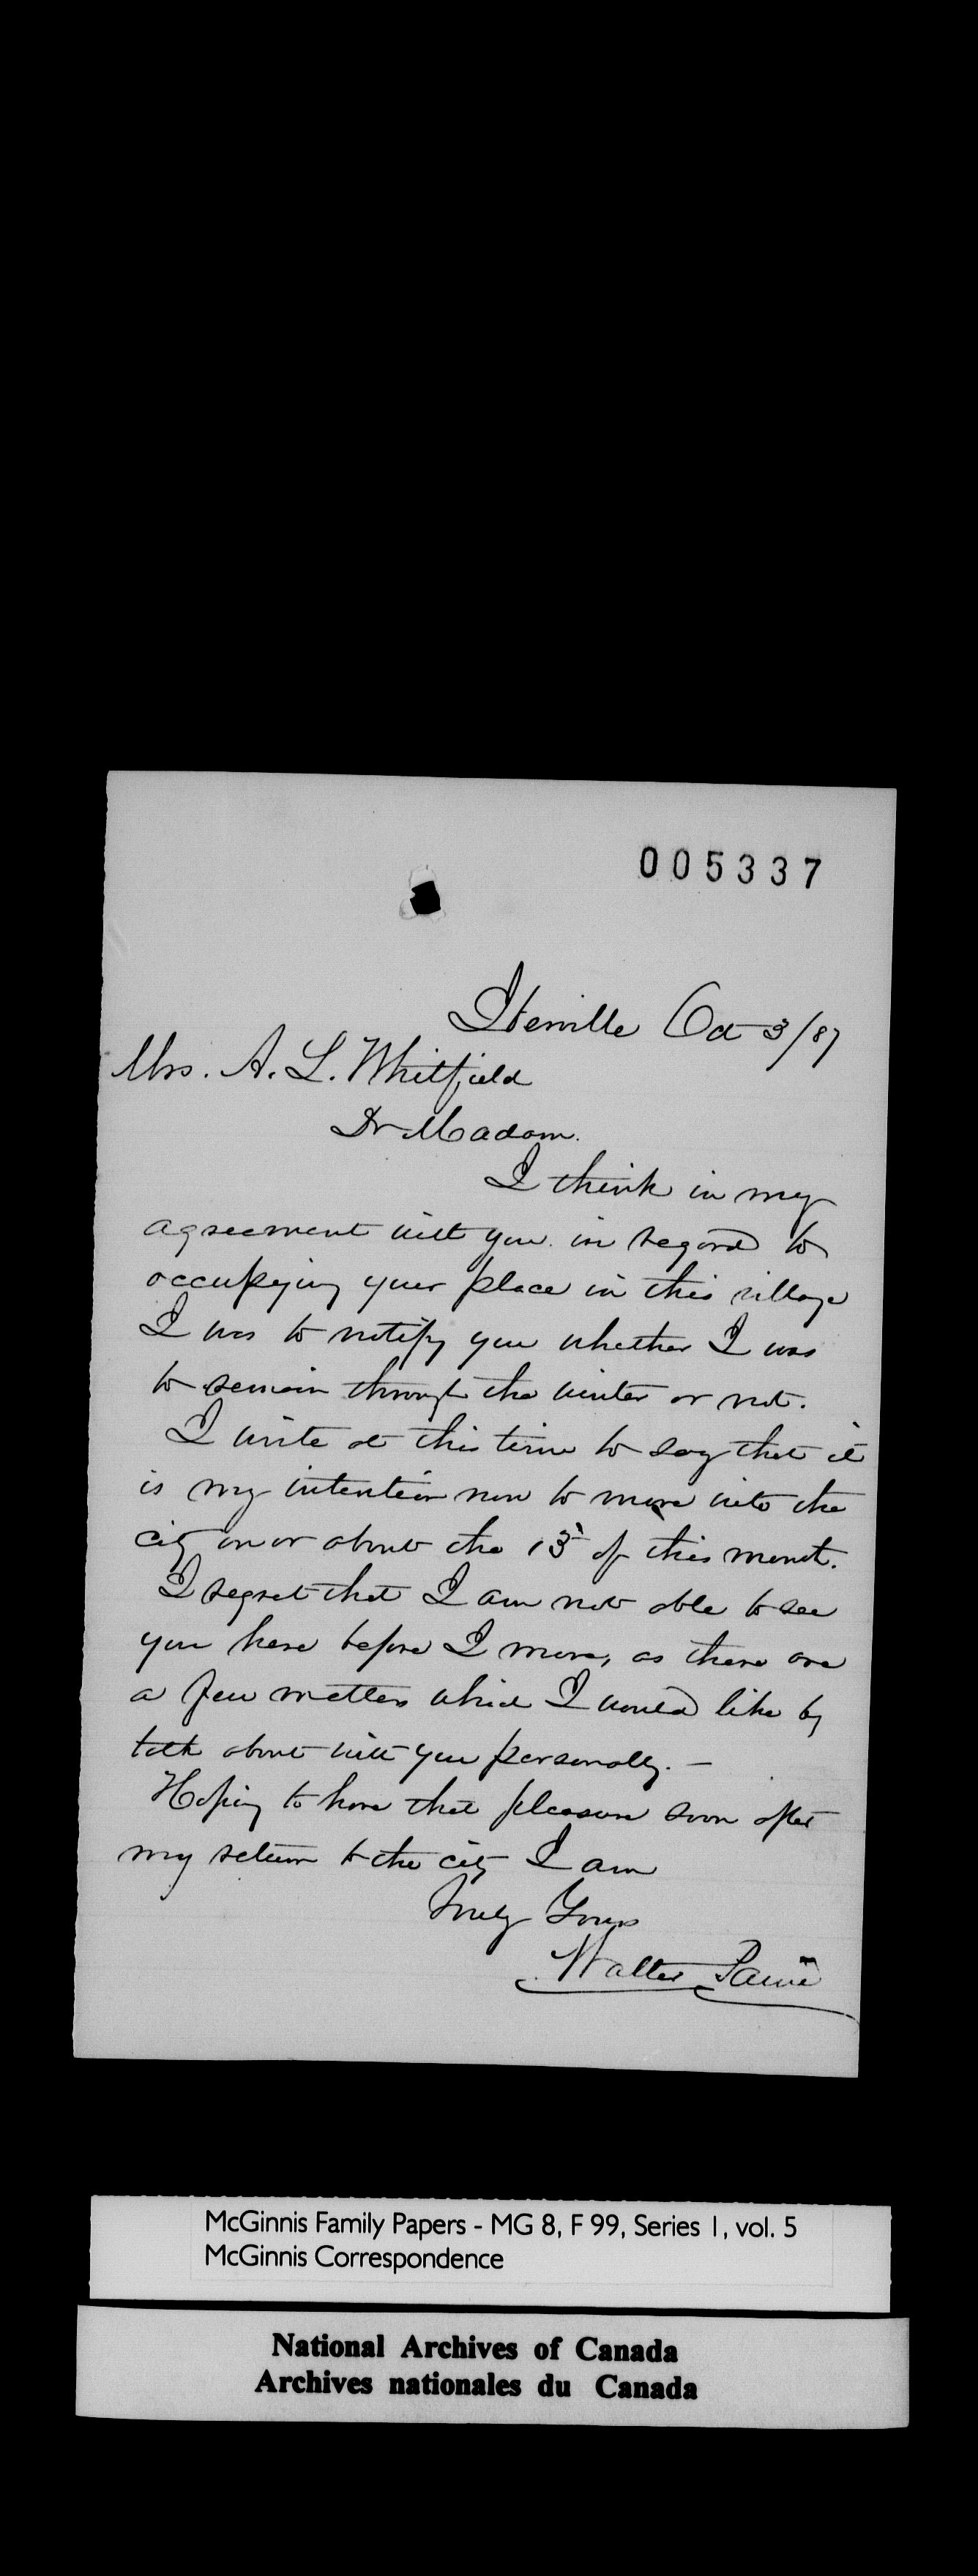 005337
Iberville Oct 3/87
Mrs. A. L. Whitfield
Dr Madam.
I think in my
agreement with you in regard to
occupying your place in this village
I was to notify you whether I was
to remain through the winter or not.
I write at this time to say that it
is my intention now to move into the
city on or about the of this month.
I regret that I am not able to see
you here before I move, as there are
a few matters which I would like to
talk about with you personally. —
Hoping to have that pleasure soon after
my return to the city I am
Truly Yours
Walter Paine
McGinnis Family Papers - MG 8, F 99, Series 1, vol. 5
McGinnis Correspondence
National Archives of Canada
Archives nationales du Canada